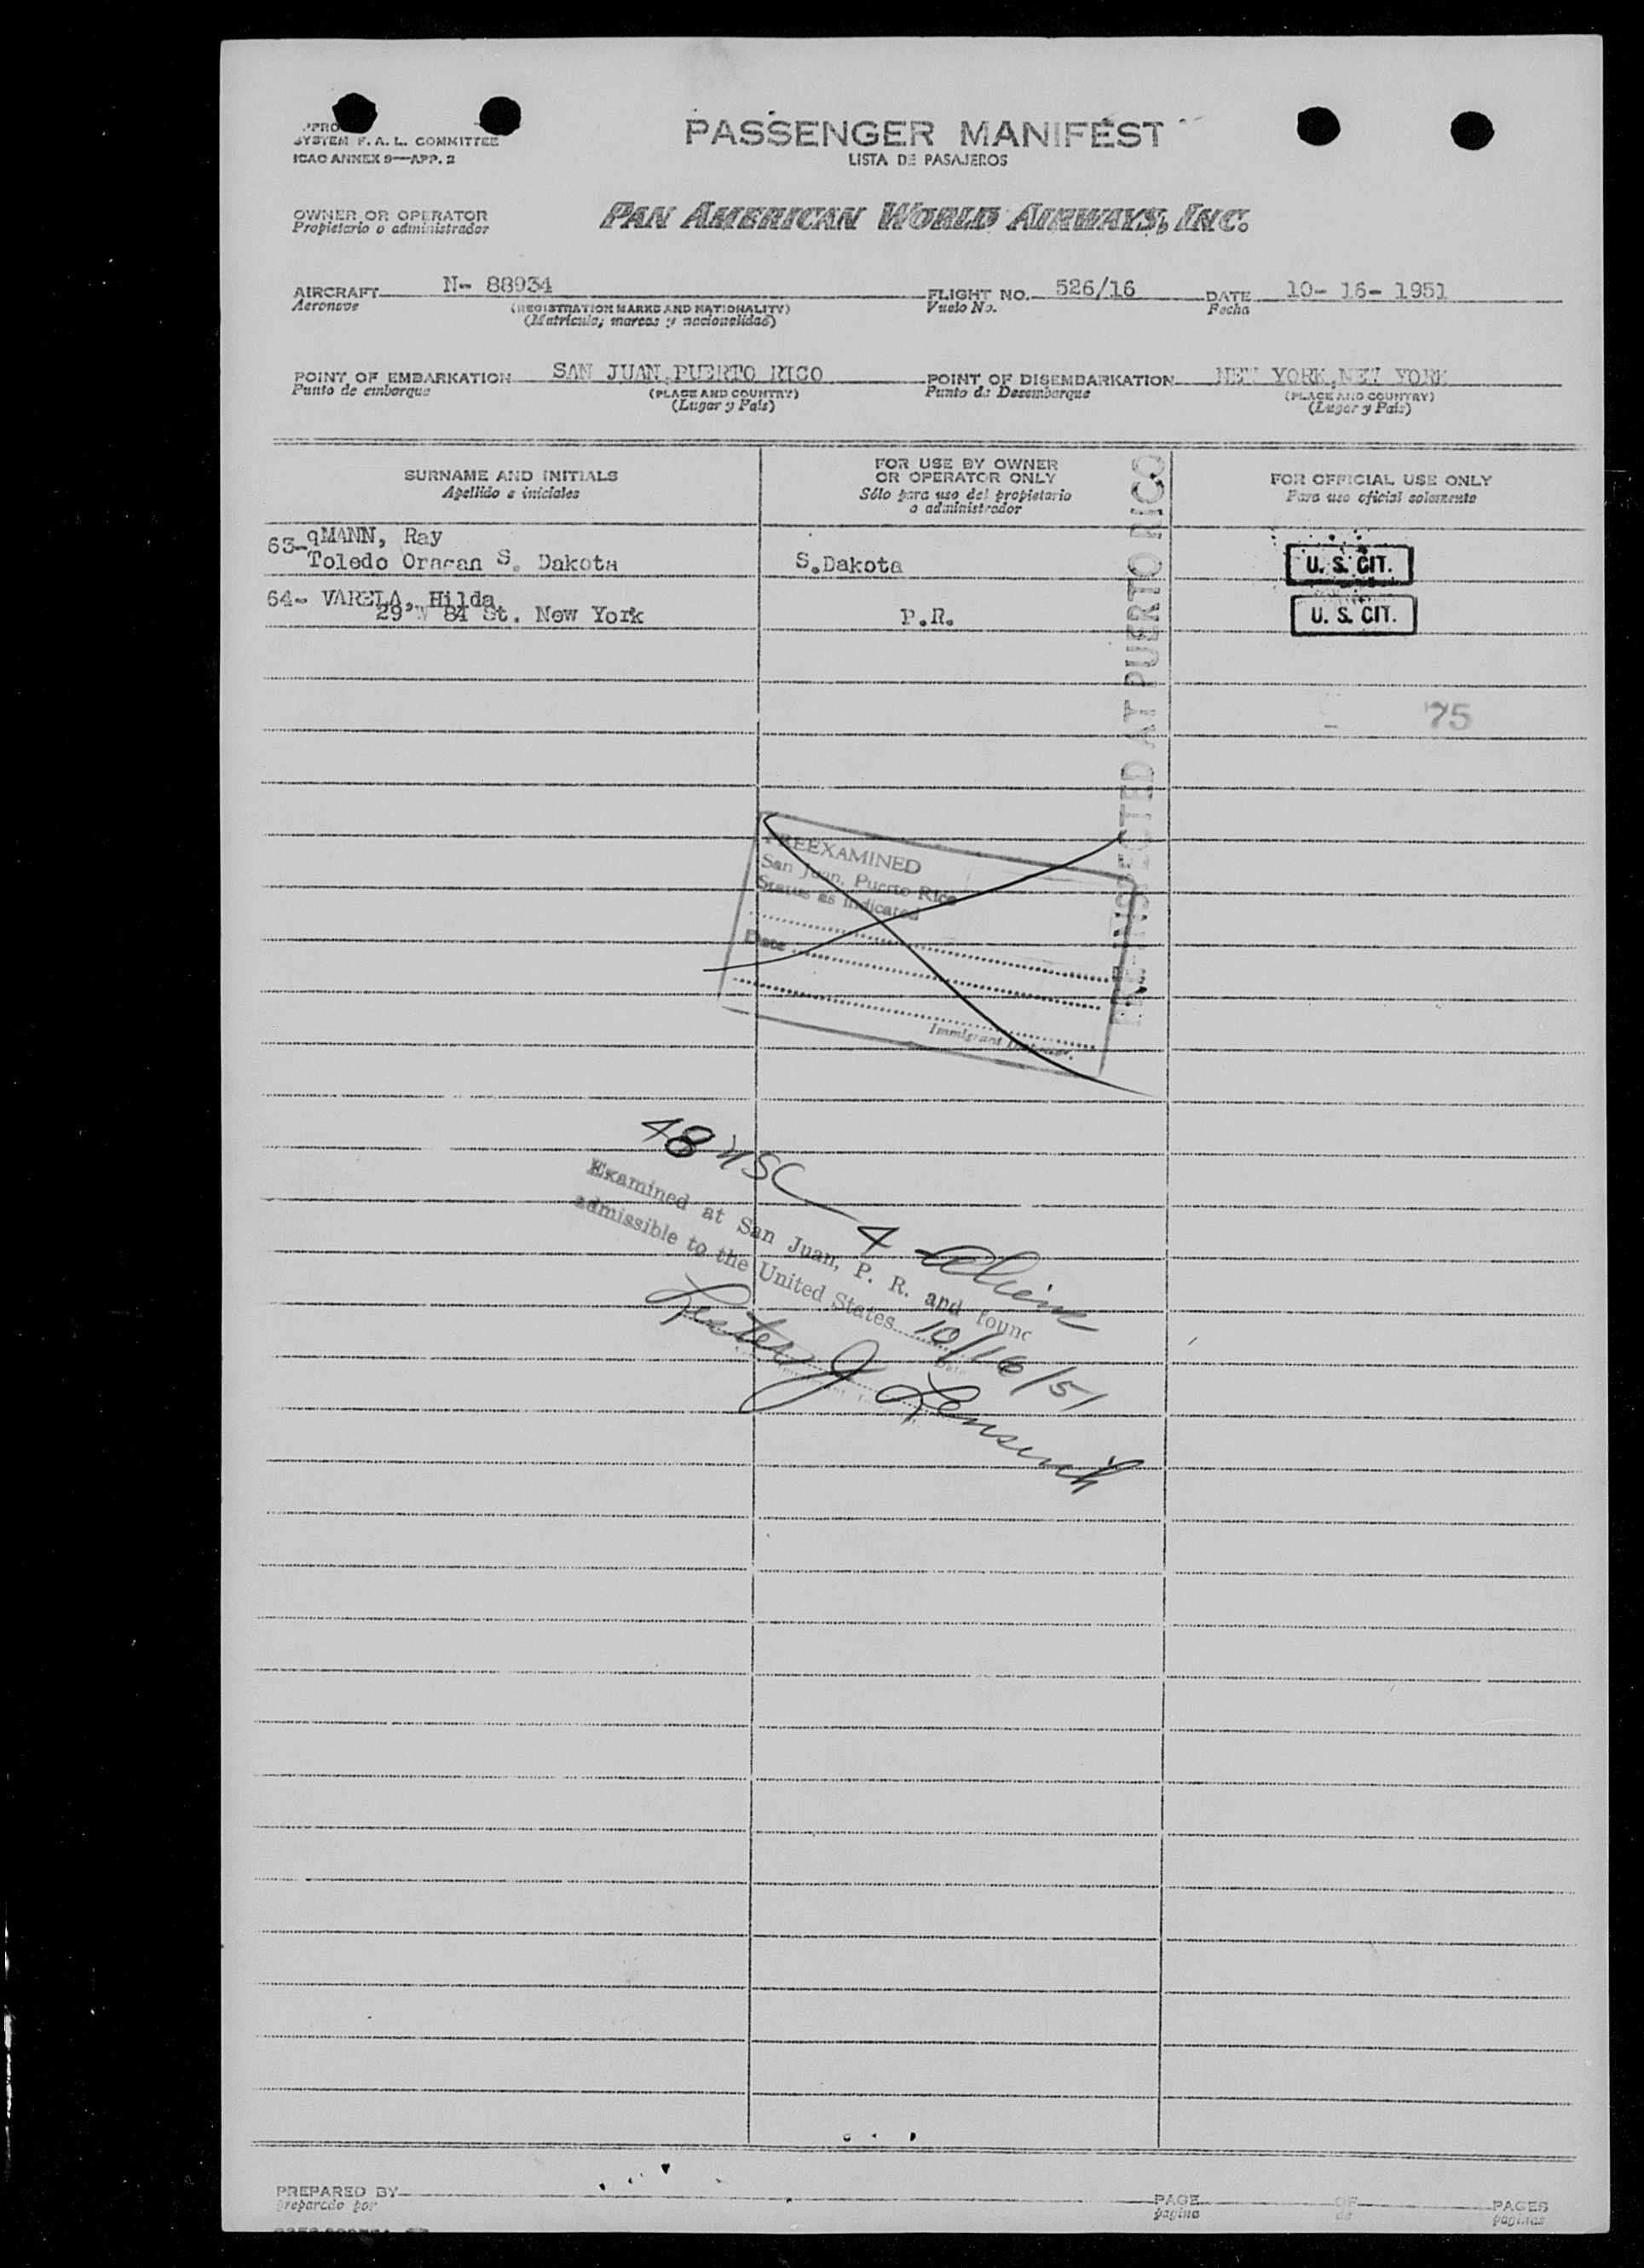 SYSTEM F. A. L. COMMITTEE
ICAO ANNEX 9—APP. 2
PASSENGER MANIFEST
LISTA DE PASAJEROS
OWNER OR OPERATOR
Propietario o administrador
PAN AMERICAN WORLD AIRWAYS, INC.
AIRCRAFT N- 88934 FLIGHT NO. 526/16 DATE 10- 16- 1951
Aeronave (REGISTRATION MARKS AND NATIONALITY) Vuelo No. Fecha
(Matrícula; marcas y nacionalidad)
POINT OF EMBARKATION SAN JUAN, PUERTO RICO POINT OF DISEMBARKATION NEW YORK, NEW YORK
Punto de embarque (PLACE AND COUNTRY) Punto de Desembarque (PLACE AND COUNTRY)
(Lugar y País) (Lugar y País)
SURNAME AND INITIALS
Apellido e iniciales
FOR USE BY OWNER
OR OPERATOR ONLY
Sólo para uso del propietario
o administrador
FOR OFFICIAL USE ONLY
Para uso oficial solamente
63- qMANN, Ray
Toledo Oragan S. Dakota S.Dakota U. S. CIT.
64- VARELA, Hilda
29 W 84 St. New York P.R. U. S. CIT.
75
INSPECTED AT PUERTO RICO
PREEXAMINED
San Juan, Puerto Rico
Status as indicated
Date
Immigrant
48 USC
4 Aliens
Examined at San Juan, P. R. and found
admissible to the United States 10/16/51
Date
Lester J
PREPARED BY PAGE OF PAGES
preparado por página de páginas